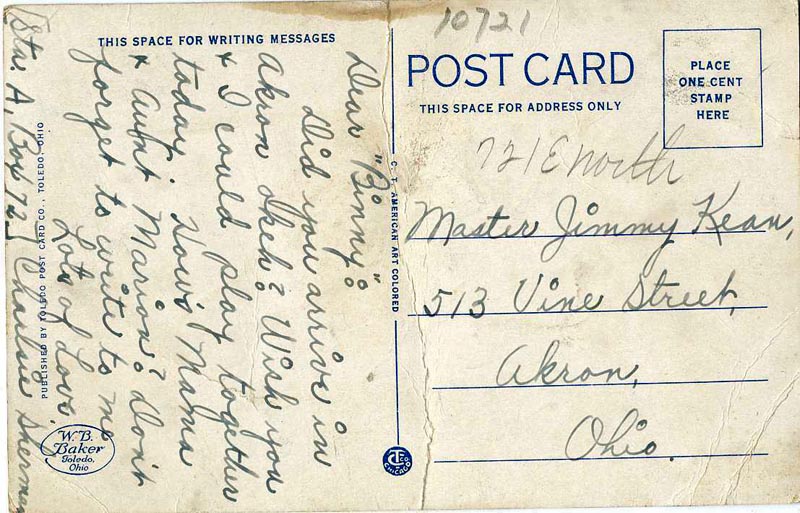 THIS SPACE FOR WRITING MESSAGES
Dear "Binny":
Did you arrive in
Akron Okeh? Wish you
& I could play together
today. How's Mama
& Aunt Marion? Don't
forget to write to me
Lots of Love
Charlsie Sherman
Sta. A, Box 72
PUBLISHED BY TOLEDO POST CARD CO., TOLEDO, OHIO
W.B.
Baker
Toledo,
Ohio
C. T. AMERICAN ART COLORED
CT CO
CHICAGO
10721
POST CARD
THIS SPACE FOR ADDRESS ONLY
PLACE
ONE CENT
STAMP
HERE
721 E north
Master Jimmy Kean,
513 Vine Street,
Akron,
Ohio.